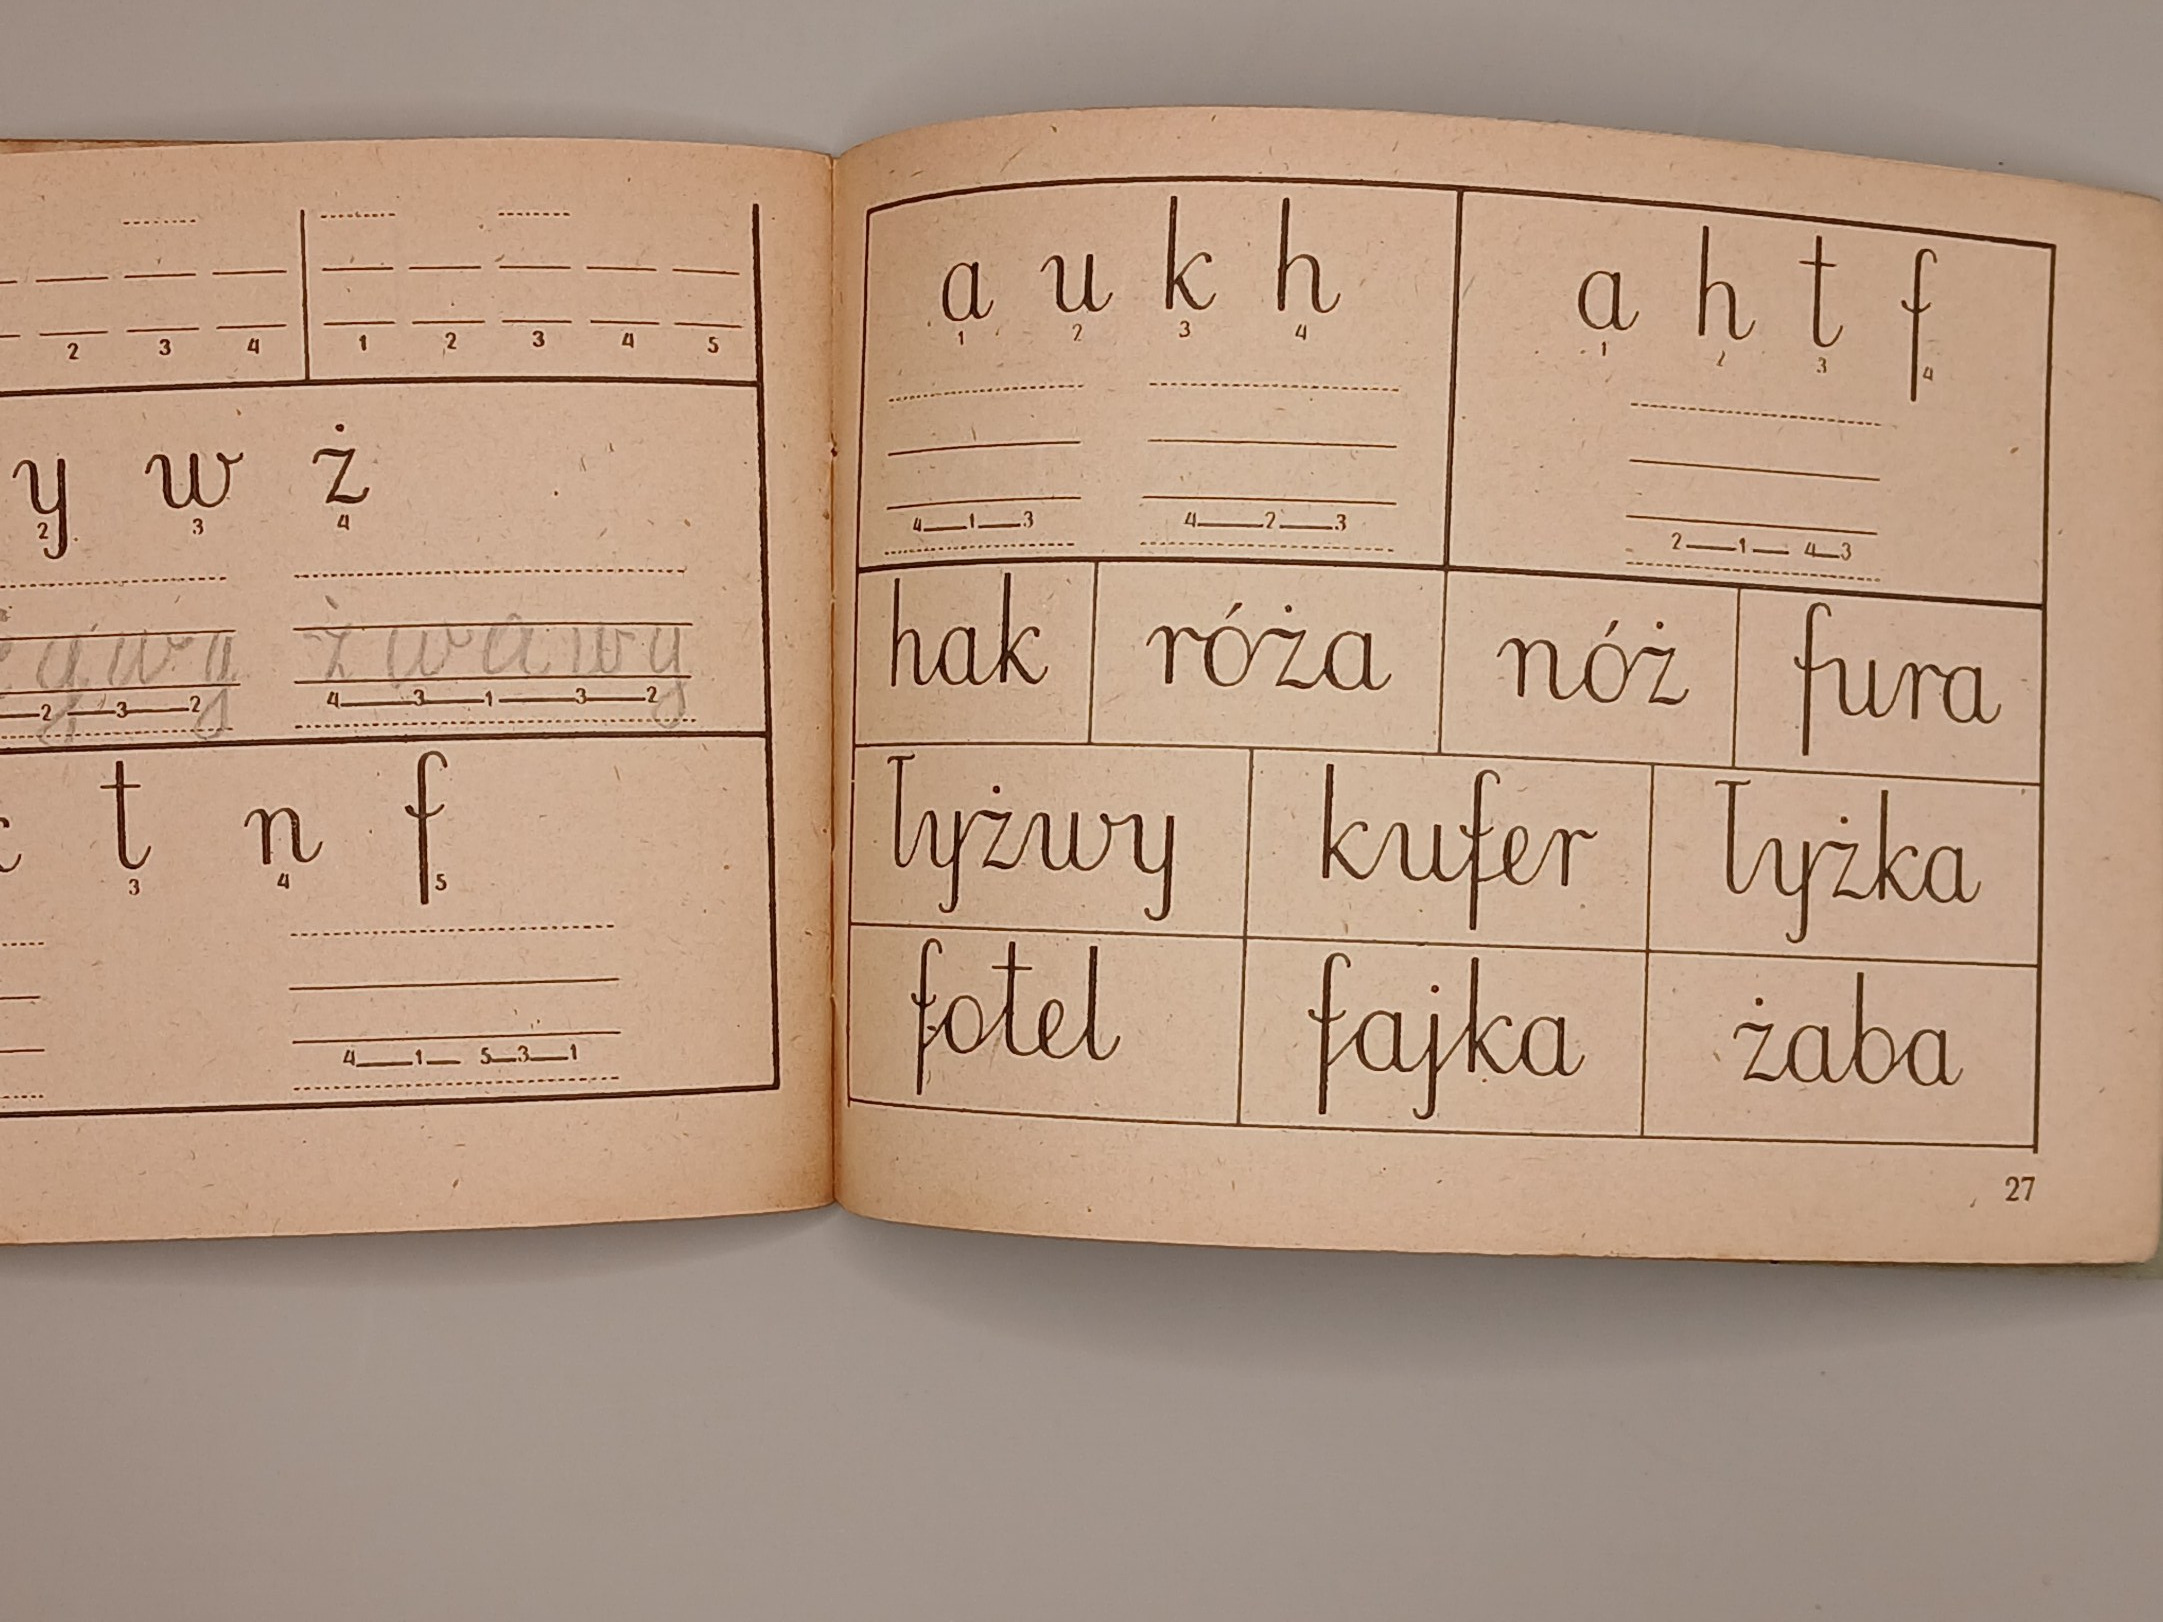 2 3 4 1 2 3 4 5
y w ż
2 3 4
ży wy żwawy
2 3 2 4 3 1 3 2
t n f
3 4 5
4 1 5 3 1
a u k h
1 2 3 4
4 1 3 4 2 3
a h t f
1 2 3 4
2 1 4 3
hak róża nóż fura
łyżwy kufer łyżka
fotel fajka żaba
27